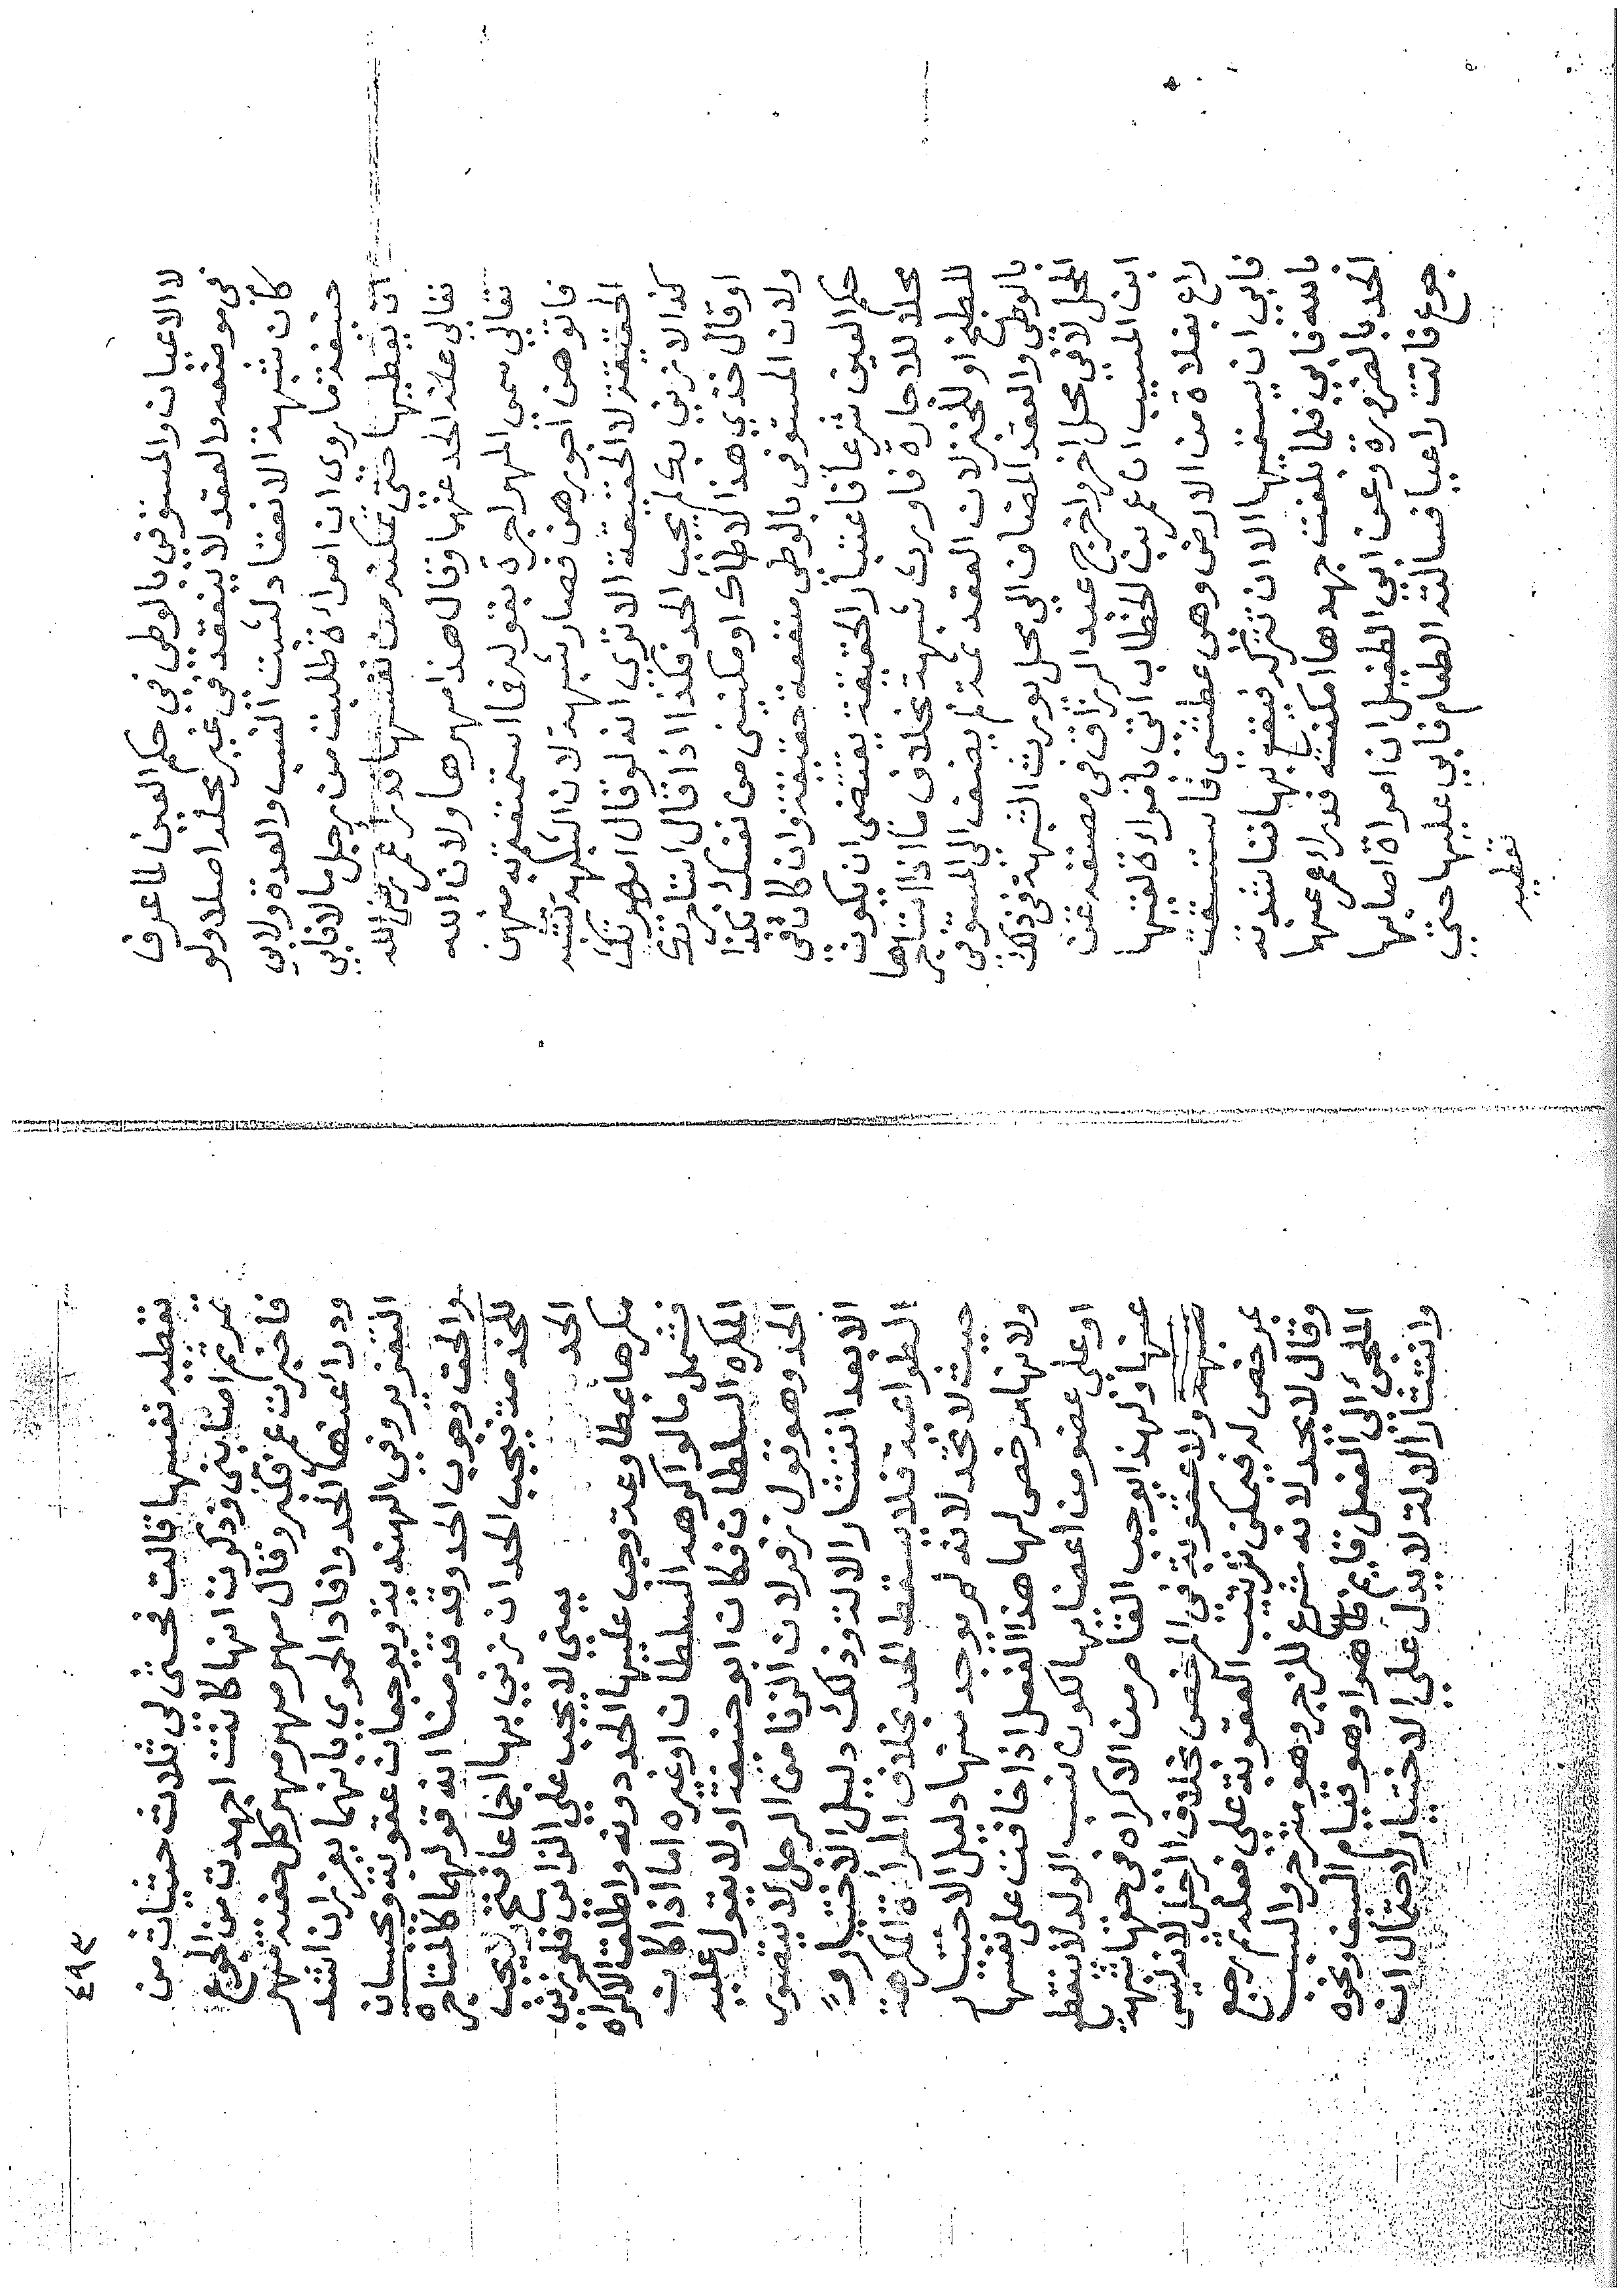 لا الاعيان والمستوفي بالوطي في حكم العين لما عرف
في موضعه والعقد لا ينعقد في غير محله اصلا ولو
كان شبهة الانعقاد لثبت النسب والعدة ولابي
حنيفة ما روي ان امراة طلبت من رجل مالا فابي
ان يعطيها حتى تمكنه من نفسها فدرا عمر رضي الله
تعالى عنه الحد عنها وقال هذا مهرها ولان الله
تعالى سمى المهر اجرة بقوله فما استمتعتم به منهن
فاتوهن اجورهن فصار شبهة لان الشبهة تشبه
الحقيقة لا الحقيقة الا ترى انه لو قال امهرتك
كذا لازني بك لم يجب الحد فكذا اذا قال استاجرتك
او قال خذي هذا لاطاك او مكنيني من نفسك بكذا
ولان المستوفى بالوطي منفعة حقيقة وان كان في
حكم العين شرعا فاعتبار الحقيقة يقتضي ان يكون
محلا للاجارة فاورث شبهة بخلاف ما اذا استاجرها
للطبخ او للخبز لان العقد ثمة لم يضف الى المستوفى
بالوطي والعقد المضاف الى محل يورث الشبهة في ذلك
المحل لا في محل اخر واخرج عبد الرزاق في مصنفه عن
ابن المسيب ان عمر بن الخطاب اتي بامراة لقيها
راع بفلاة من الارض وهي عطشى فاستسقت
فابى ان يسقيها الا ان تتركه فيقع بها فناشدته
بالله فابى فلما بلغت جهدها امكنته فدرا عمر عنها
الحد بالضرورة وعن ابي الطفيل ان امراة اصابها
جوع فاتت راعيا فسالته الطعام فابى عليها حتى
تعطيه
٤٩٣
تعطيه نفسها قالت فحثى لي ثلاث حثيات من
تمر ثم اصابني وذكرت انها كانت اجهدت من الجوع
فاخبرت عمر فكبر وقال مهر مهر مهر كل حفنة مهر
ودرا عنها الحد وافاد الحموي بانهما يعزران اشد
التعزير وفي الهندية ويوجعان عقوبة ويحبسان
والحق وجوب الحد وقد قدمنا انه قولهما كالمستاجرة
للخدمة يجب الحد ان زنى بها اجماعا لا يجب
الحد يعني لا يجب على الذي زنى
مكرها مطاوعة وجب عليها الحد دونه واطلق الاكراه
فشمل ما لو اكرهه السلطان او غيره اما اذا كان
المكره السلطان فكان ابو حنيفة اولا يقول عليه
الحد وهو قول زفر لان الزنا من الرجل لا يتصور
الا بعد انتشار الالة وذلك دليل الاختيار و
الطواعية فلا يسقط الحد بخلاف المراة المكرهة
حيث لا تحد لانه لم يوجد منها دليل الاختيار
ولانها مرخص لها هذا الفعل اذا خافت على نفسها
او على عضو من اعضايها لكون نسب الولد لا ينقطع
عنها ولهذا يوجب القاصر من الاكراه في حقها شبهة
شبهة ولا عقوبة في المرخص بخلاف الرجل لانه ليس
بمرخص له فيمكن ترتيب العقوبة على فعله ثم رجع
وقال لا يحد لانه شرع للزجر وهو منزجر والسبب
الملجئ الى الفعل قايم ظاهرا وهو قيام السيف ونحوه
وانتشار الالة لا يدل على الاختيار لاحتمال ان